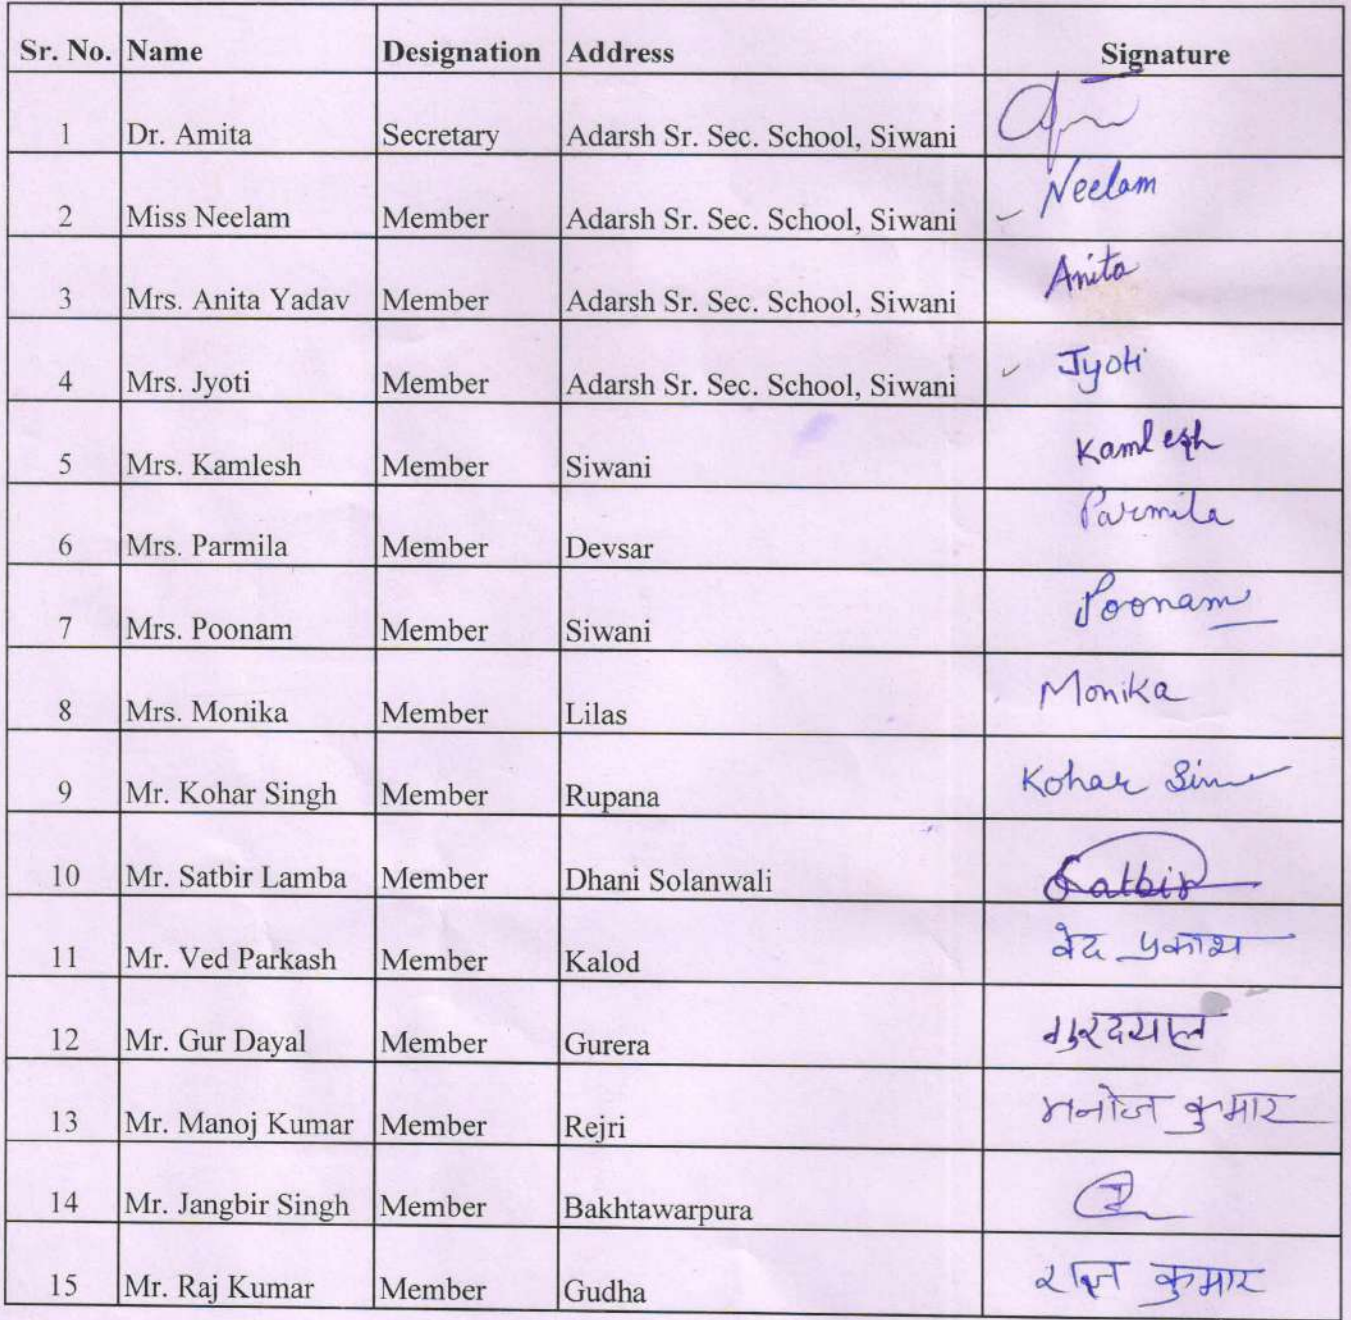 Sr. No. Name Designation Address Signature
1 Dr. Amita Secretary Adarsh Sr. Sec. School, Siwani
2 Miss Neelam Member Adarsh Sr. Sec. School, Siwani Neelam
3 Mrs. Anita Yadav Member Adarsh Sr. Sec. School, Siwani Anita
4 Mrs. Jyoti Member Adarsh Sr. Sec. School, Siwani Jyoti
5 Mrs. Kamlesh Member Siwani Kamlesh
6 Mrs. Parmila Member Devsar Parmila
7 Mrs. Poonam Member Siwani Poonam
8 Mrs. Monika Member Lilas Monika
9 Mr. Kohar Singh Member Rupana Kohar
10 Mr. Satbir Lamba Member Dhani Solanwali Satbir
11 Mr. Ved Parkash Member Kalod वेद प्रकाश
12 Mr. Gur Dayal Member Gurera गुरदयाल
13 Mr. Manoj Kumar Member Rejri मनोज कुमार
14 Mr. Jangbir Singh Member Bakhtawarpura
15 Mr. Raj Kumar Member Gudha राज कुमार